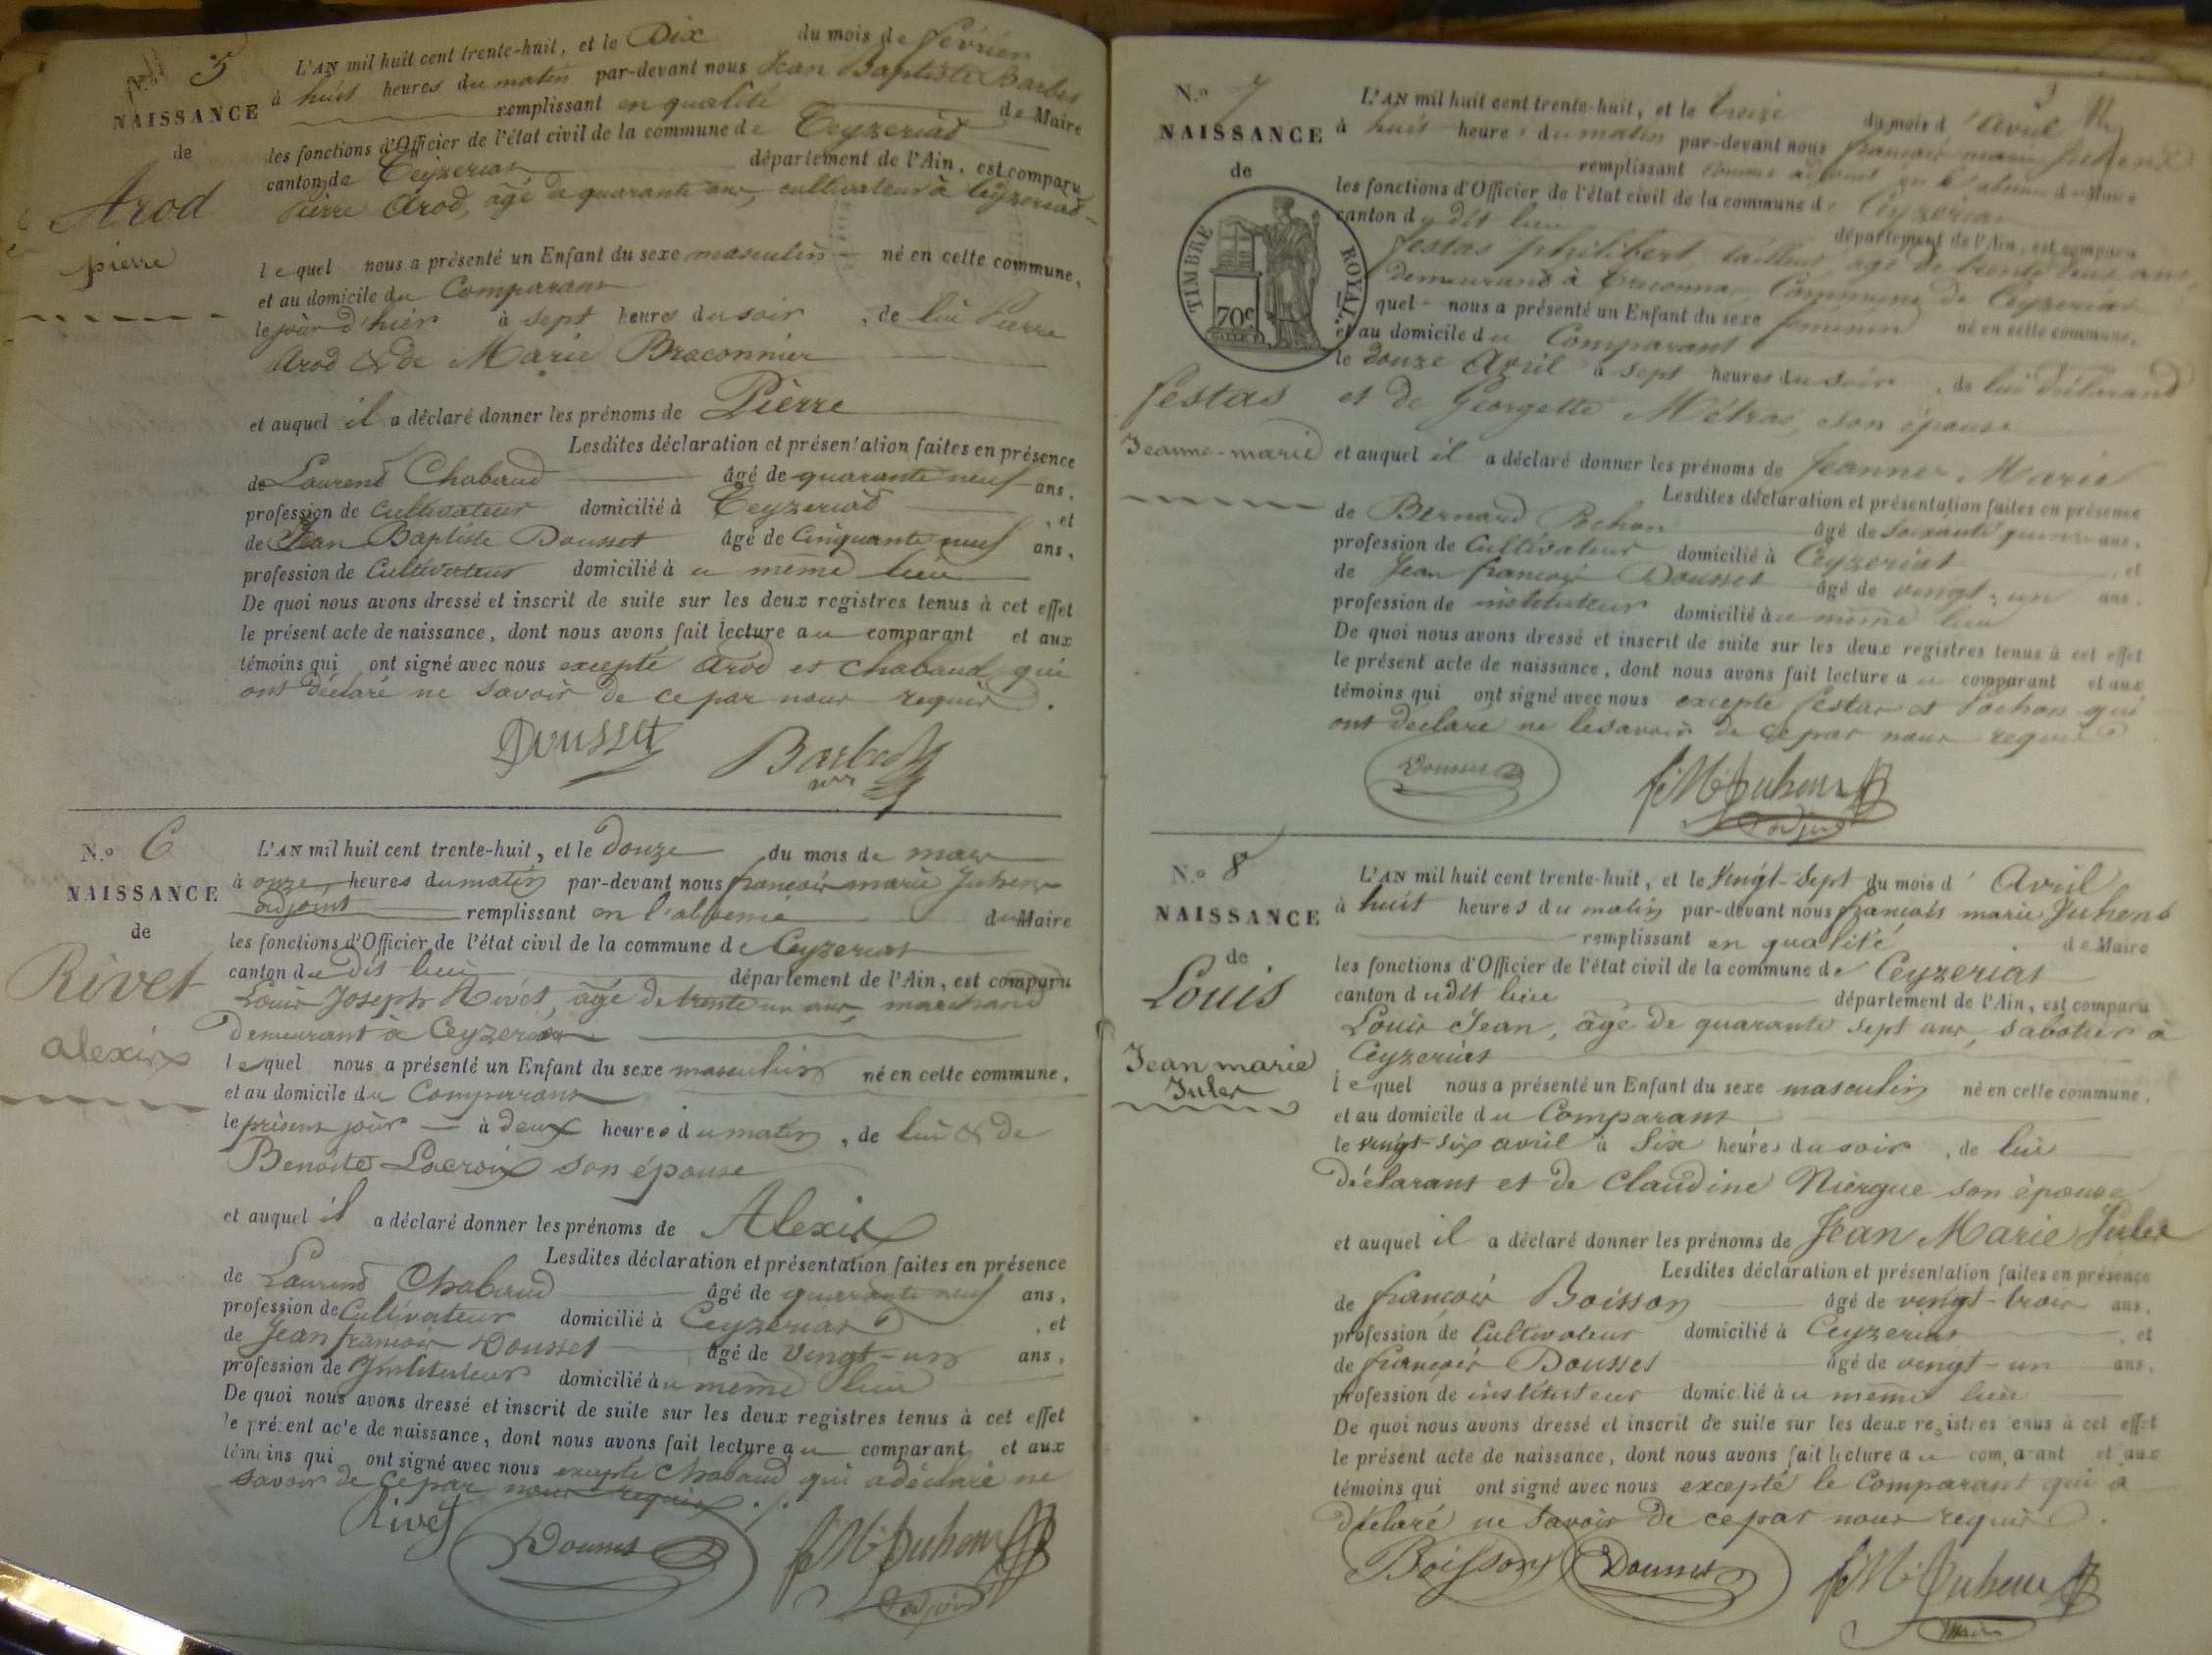 N.º 5
NAISSANCE
de
Arod
pierre
L'AN mil huit cent trente-huit, et le Dix du mois de février
à huit heures du matin par-devant nous Jean Baptiste Barbet
remplissant en qualité de Maire
les fonctions d'Officier de l'état civil de la commune de Ceyzeriat
canton de Ceyzeriat département de l'Ain, est comparu
Pierre Arod, âgé de quarante ans, cultivateur à Ceyzeriat
lequel nous a présenté un Enfant du sexe masculin né en cette commune,
et au domicile du Comparant
le jour d'hier à sept heures du soir, de lui Pierre
Arod & de Marie Braconnier
et auquel il a déclaré donner les prénoms de Pierre
Lesdites déclaration et présentation faites en présence
de Laurend Chabaud âgé de quarante neuf ans,
profession de Cultivateur domicilié à Ceyzeriat, et
de Jean Baptiste Dousset âgé de Cinquante neuf ans,
profession de Cultivateur domicilié à u même lieu
De quoi nous avons dressé et inscrit de suite sur les deux registres tenus à cet effet
le présent acte de naissance, dont nous avons fait lecture au comparant et aux
témoins qui ont signé avec nous excepté Arod et Chabaud qui
ont déclaré ne savoir de ce par nous requis.
Dousset Barbet
N.º 6
NAISSANCE
de
Rivet
alexis
L'AN mil huit cent trente-huit, et le douze du mois de mars
à onze heures du matin par-devant nous françois marie Juhens
adjoint remplissant en l'absence du Maire
les fonctions d'Officier de l'état civil de la commune de Ceyzeriat
canton du dit lieu département de l'Ain, est comparu
Louis Joseph Rivet, âgé de trente un ans, marchand
demeurant à Ceyzeriat
lequel nous a présenté un Enfant du sexe masculin né en cette commune,
et au domicile du Comparant
le présent jour à deux heures du matin, de lui & de
Benoite Lacroix son épouse
et auquel il a déclaré donner les prénoms de Alexis
Lesdites déclaration et présentation faites en présence
de Laurend Chabaud âgé de quarante neuf ans,
profession de Cultivateur domicilié à Ceyzeriat, et
de Jean françois Dousset âgé de vingt-un ans,
profession de Instituteur domicilié à u même lieu
De quoi nous avons dressé et inscrit de suite sur les deux registres tenus à cet effet
le présent acte de naissance, dont nous avons fait lecture au comparant et aux
témoins qui ont signé avec nous excepté Chabaud qui a déclaré ne
savoir de ce par nous requis.
Rivet Dousset f. M. Juhens
adjoint
N.º 7
NAISSANCE
de
TIMBRE ROYAL
70c
festas
Jeanne-marie
L'AN mil huit cent trente-huit, et le treize du mois d'avril
à huit heures du matin par-devant nous françois marie Juhens
remplissant comme adjoint en l'absence du Maire
les fonctions d'Officier de l'état civil de la commune de Ceyzeriat
canton dudit lieu département de l'Ain, est comparu
festas philibert, tailleur âgé de trente deux ans,
demeurant à Commune de Ceyzeriat
quel nous a présenté un Enfant du sexe féminin né en cette commune,
et au domicile du Comparant
le douze Avril à sept heures du soir, de lui déclarand
et de Georgette Métras, son épouse
et auquel il a déclaré donner les prénoms de Jeanne Marie
Lesdites déclaration et présentation faites en présence
de Bernard Pochon âgé de soixante ans,
profession de Cultivateur domicilié à Ceyzeriat, et
de Jean françois Dousset âgé de vingt-un ans,
profession de instituteur domicilié à u même lieu
De quoi nous avons dressé et inscrit de suite sur les deux registres tenus à cet effet
le présent acte de naissance, dont nous avons fait lecture au comparant et aux
témoins qui ont signé avec nous excepté festas et Pochon qui
ont déclaré ne le savoir de ce par nous requis
Dousset f. M. Juhens
adjoint
N.º 8
NAISSANCE
de
Louis
Jean marie
Jules
L'AN mil huit cent trente-huit, et le Vingt-Sept du mois d'Avril
à huit heures du matin par-devant nous françois marie Juhens
remplissant en qualité de Maire
les fonctions d'Officier de l'état civil de la commune de Ceyzeriat
canton dudit lieu département de l'Ain, est comparu
Louis Jean, âgé de quarante sept ans, sabotier à
Ceyzeriat
lequel nous a présenté un Enfant du sexe masculin né en cette commune,
et au domicile du Comparant
le vingt-six avril à Six heures du soir, de lui
déclarant et de Claudine Niergue son épouse
et auquel il a déclaré donner les prénoms de Jean Marie Jules
Lesdites déclaration et présentation faites en présence
de françois Boisson âgé de vingt-trois ans,
profession de Cultivateur domicilié à Ceyzeriat, et
de françois Dousset âgé de vingt-un ans,
profession de instituteur domicilié à u même lieu
De quoi nous avons dressé et inscrit de suite sur les deux registres tenus à cet effet
le présent acte de naissance, dont nous avons fait lecture au comparant et aux
témoins qui ont signé avec nous excepté le Comparant qui a
déclaré ne savoir de ce par nous requis.
Boisson Dousset f. M. Juhens
Maire